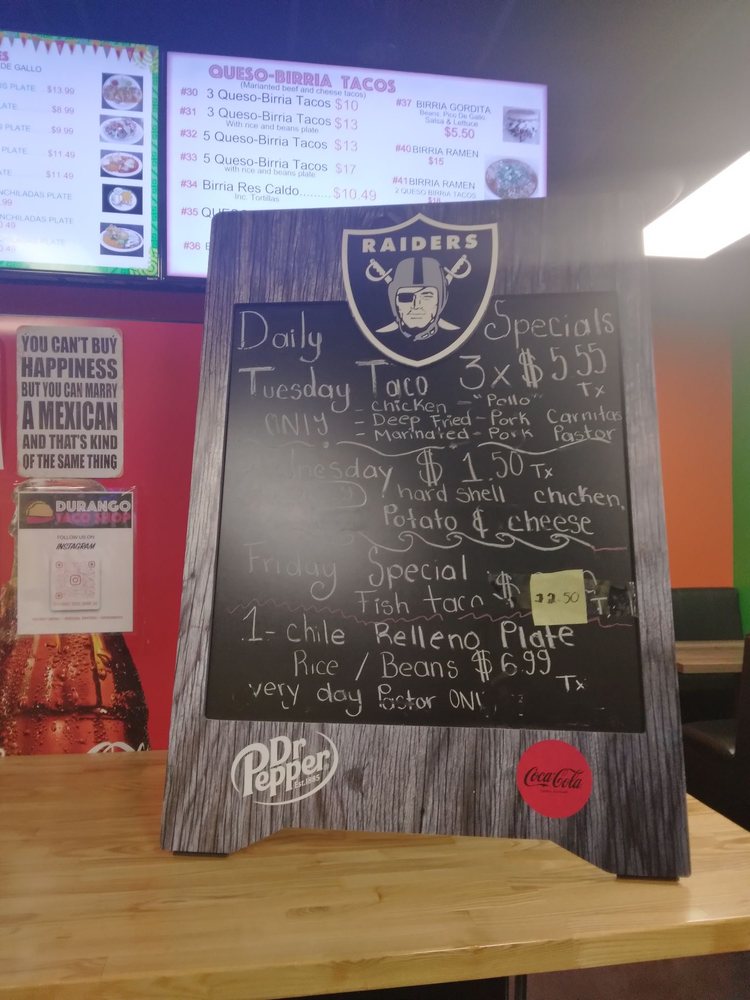 ES
DE GALLO
S PLATE ..... $13.99
LATE ..... $8.99
S PLATE ..... $9.99
PLATE ..... $11.49
PLATE ..... $11.49
NCHILADAS PLATE
.99
NCHILADAS PLATE
0.49
CHILADAS PLATE
0.49
QUESO-BIRRIA TACOS
(Marianted beef and cheese tacos)
#30 3 Queso-Birria Tacos $10
#31 3 Queso-Birria Tacos $13
With rice and beans plate
#32 5 Queso-Birria Tacos $13
#33 5 Queso-Birria Tacos $17
with rice and beans plate
#34 Birria Res Caldo......... $10.49
Inc. Tortillas
#35 QUES
#36
#37 BIRRIA GORDITA
Beans, Pico De Gallo,
Salsa & Lettuce
$5.50
#40 BIRRIA RAMEN
$15
#41 BIRRIA RAMEN
2 QUESO BIRRIA TACOS
YOU CAN'T BUY
HAPPINESS
BUT YOU CAN MARRY
A MEXICAN
AND THAT'S KIND
OF THE SAME THING
DURANGO
TACO SHOP
FOLLOW US ON
INSTAGRAM
RAIDERS
Daily Specials
Tuesday Taco 3x $5.55
Tx
ONLY - Chicken - "Pollo"
- Deep Fried - Pork Carnitas
- Marinated - Pork Pastor
nesday $1.50 Tx
hard shell chicken,
Potato & cheese
Friday Special
Fish taco $ .50 T
1- Chile Relleno Plate
Rice / Beans $6.99
Tx
very day Pastor ONL
Dr Pepper
Est. 1885
Coca-Cola